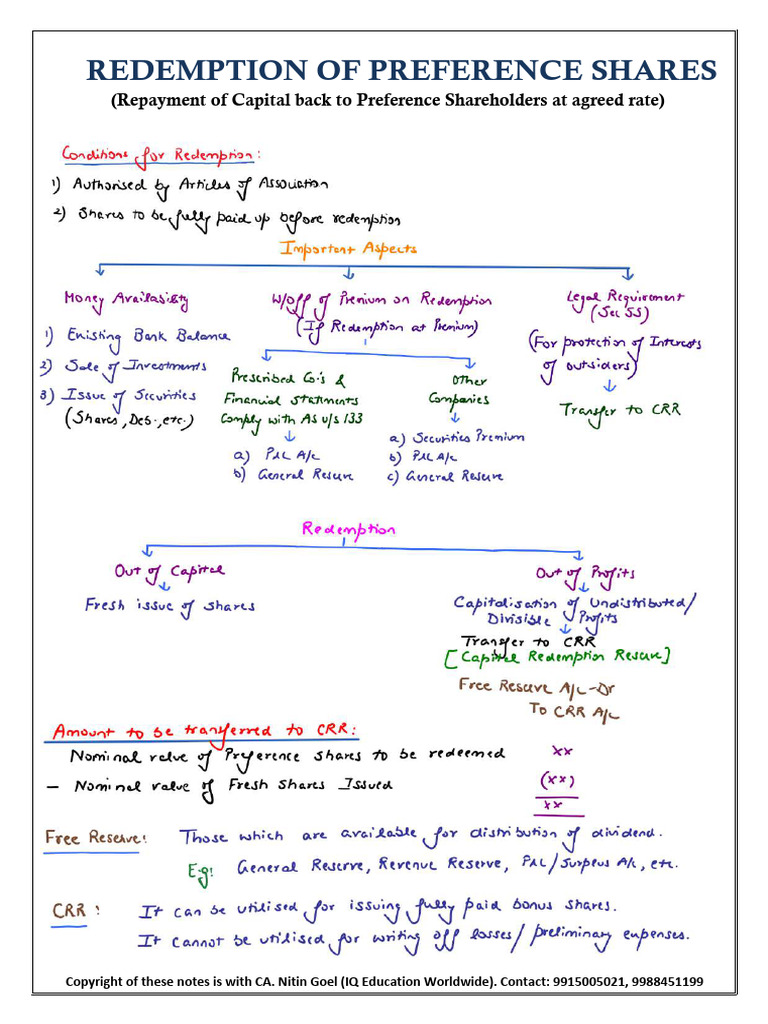 REDEMPTION OF PREFERENCE SHARES
(Repayment of Capital back to Preference Shareholders at agreed rate)
Conditions for Redemption:
1) Authorised by Articles of Association
2) Shares to be fully paid up before redemption
Important Aspects
Money Availability
1) Existing Bank Balance
2) Sale of Investments
3) Issue of Securities
(Shares, Deb., etc.)
W/off of Premium on Redemption
(If Redemption at Premium)
Prescribed Co.'s &
Financial statments
Comply with AS u/s 133
a) P&L A/c
b) General Reserve
Other
Companies
a) Securities Premium
b) P&L A/c
c) General Reserve
Legal Requirement
(Sec 55)
(For protection of Interests
of outsiders)
Transfer to CRR
Redemption
Out of Capital
Fresh issue of shares
Out of Profits
Capitalisation of Undistributed/
Divisible Profits
Transfer to CRR
[Capital Redemption Reserve]
Free Reserve A/c-Dr
To CRR A/c
Amount to be transferred to CRR:
Nominal value of Preference shares to be redeemed xx
- Nominal value of Fresh Shares Issued (xx)
xx
Free Reserve: Those which are available for distribution of dividend.
Eg: General Reserve, Revenue Reserve, P&L/Surplus A/c, etc.
CRR: It can be utilised for issuing fully paid bonus shares.
It cannot be utilised for writing off losses/preliminary expenses.
Copyright of these notes is with CA. Nitin Goel (IQ Education Worldwide). Contact: 9915005021, 9988451199